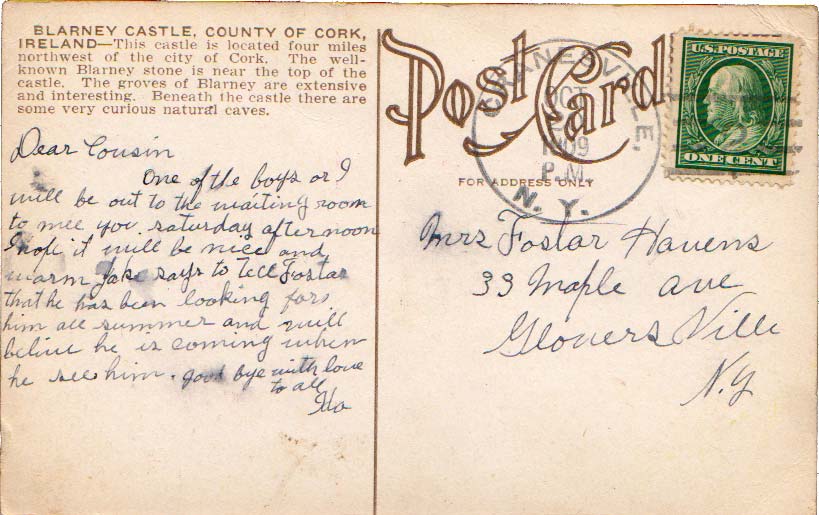 BLARNEY CASTLE, COUNTY OF CORK,
IRELAND—This castle is located four miles
northwest of the city of Cork. The well-
known Blarney stone is near the top of the
castle. The groves of Blarney are extensive
and interesting. Beneath the castle there are
some very curious natural caves.
Dear Cousin
One of the boys or I
will be out to the waiting room
to mee you saturday afternoon
I hope it will be nice and
warm Jake says to Tell Fostar
that he has been looking for
him all summer and will
belive he is coming when
he sees him. good bye with love
to all
Ida
Post Card
FOR ADDRESS ONLY
CRANESVILLE,
OCT
1909
P.M.
N. Y.
U.S. POSTAGE
ONE CENT
Mrs Fostar Havens
33 Maple ave
Glovers Ville
N.Y